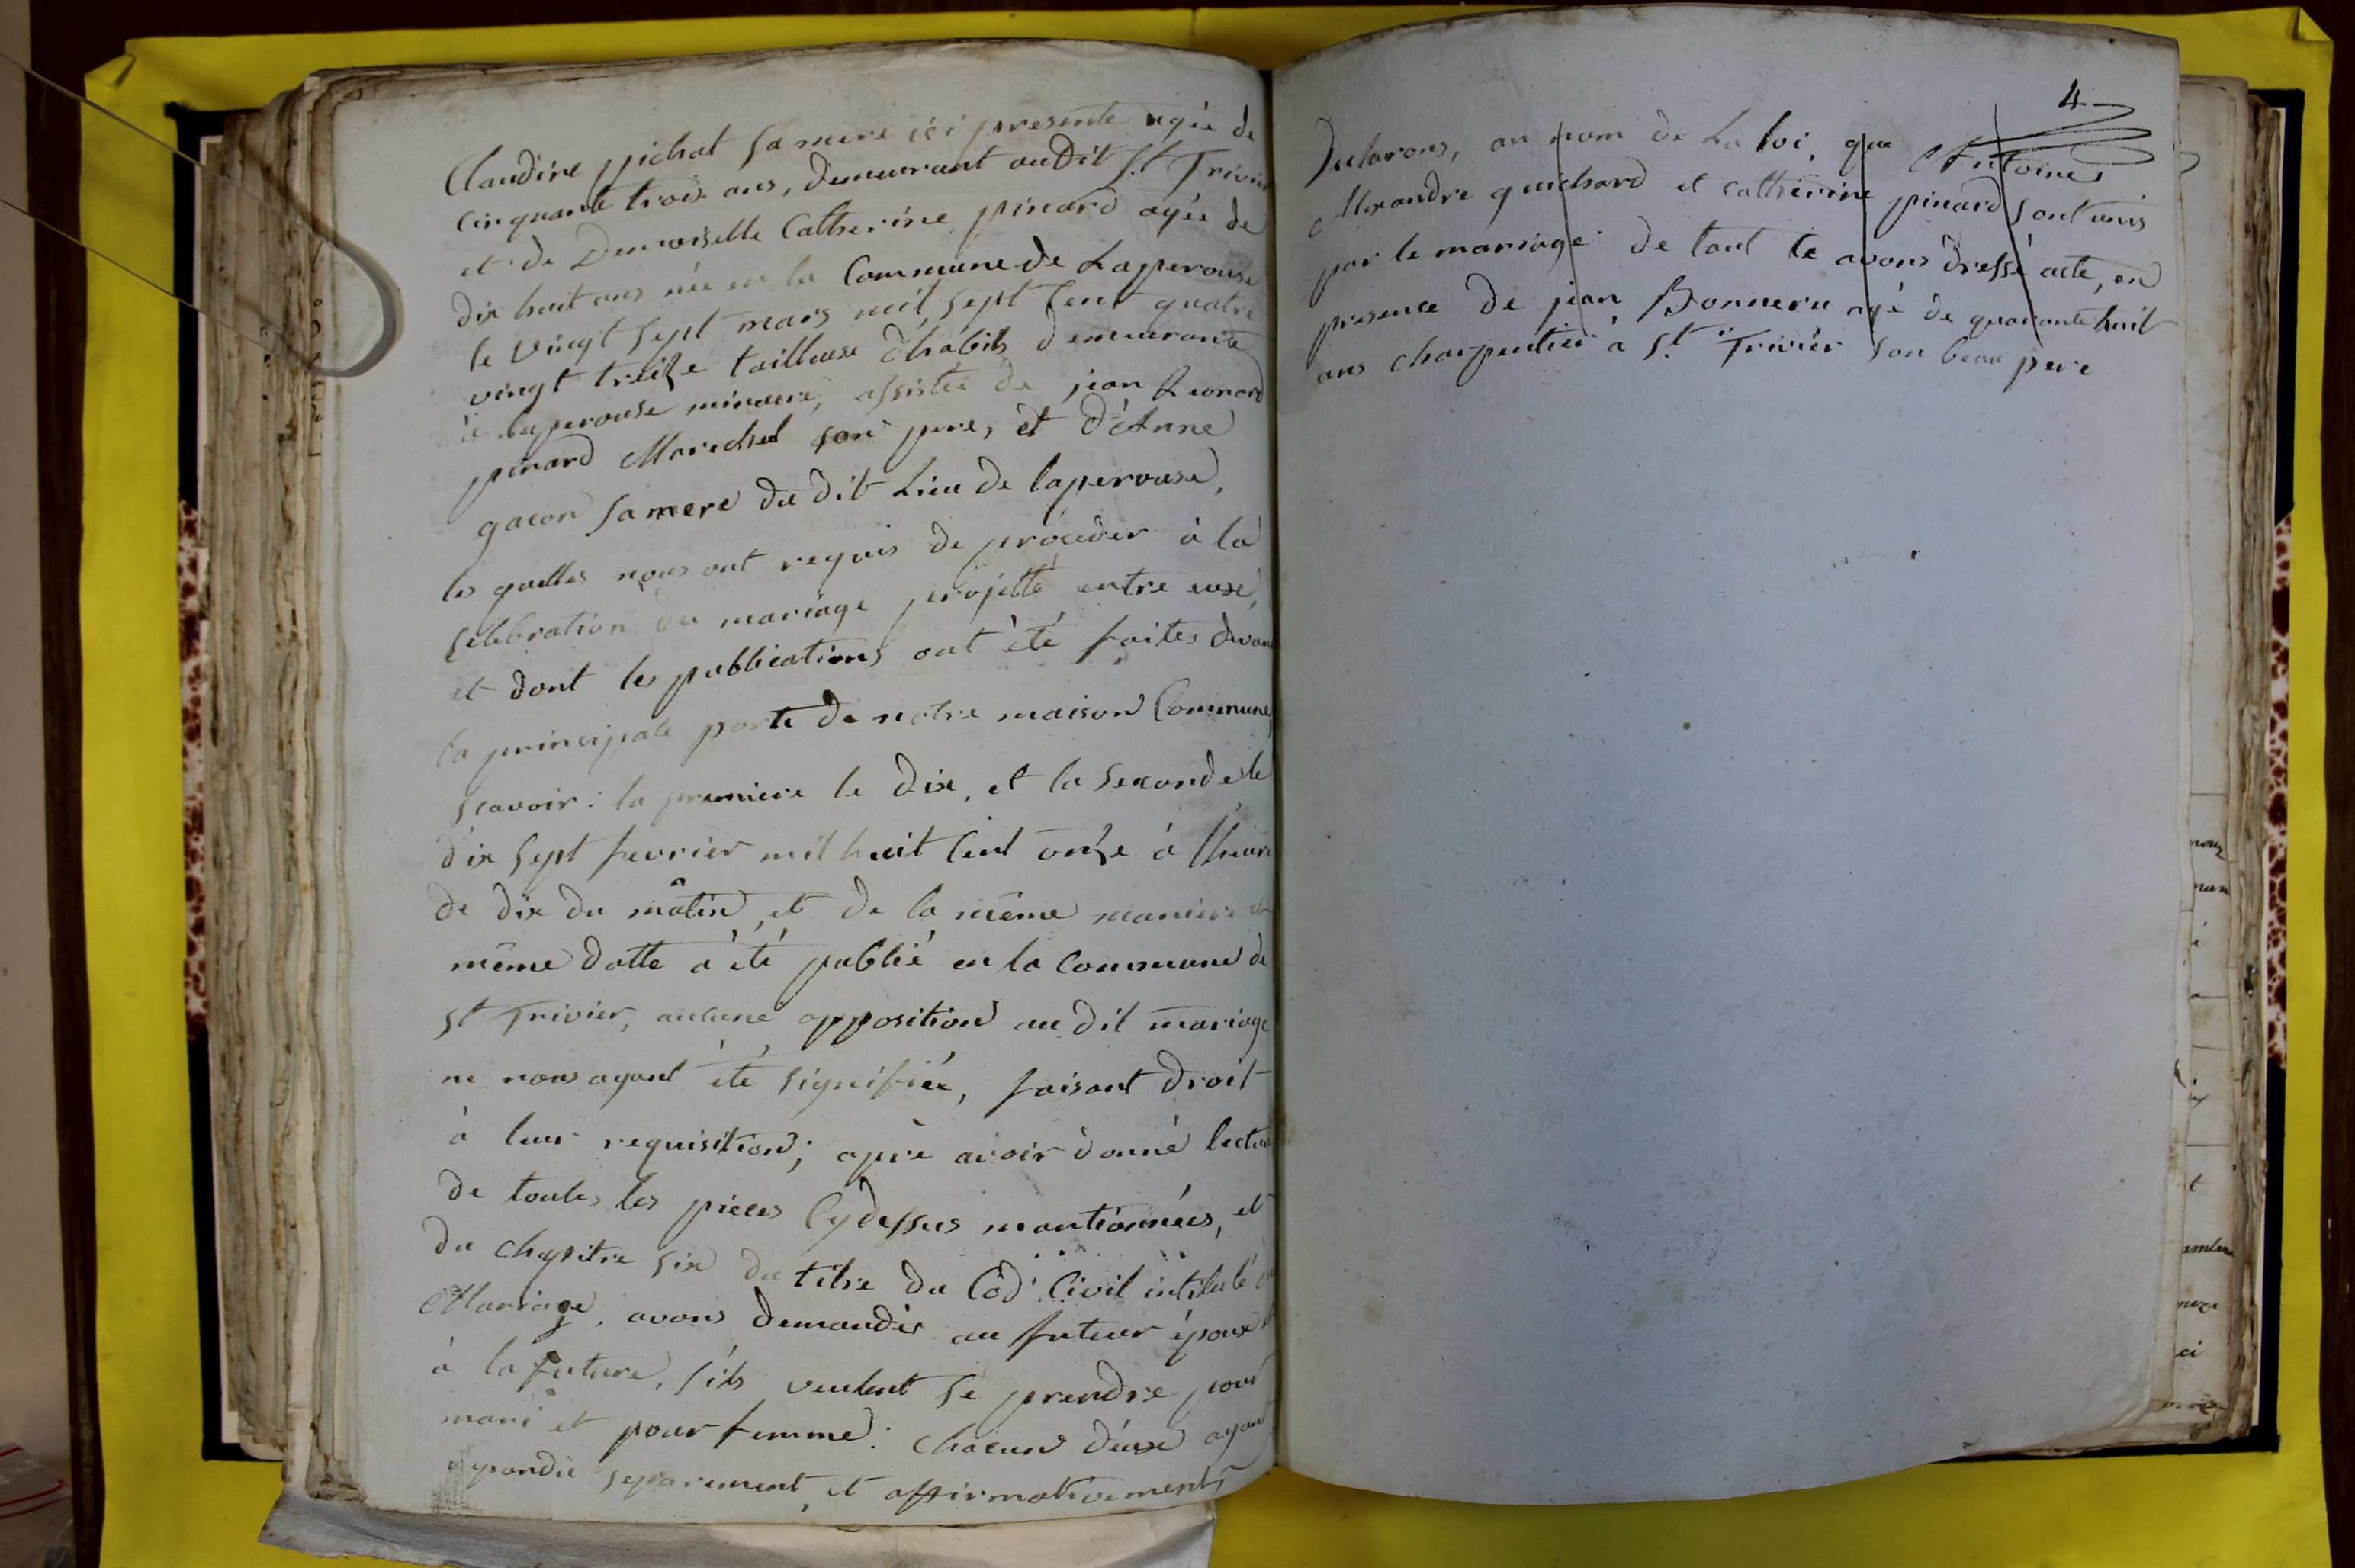 Claudine pichat sa mere ici presente agée de
cinquante trois ans, demeurant audit St Trivier
et de Demoiselle Catherine pinard agée de
dix huit ans née en la Commune de Laperouse
le vingt sept mars mil sept Cent quatre
vingt treize tailleuse d'habits demeurante
à laperouse mineure, assistée de jean Leonard
pinard Marechal son pere, et d'Anne
gacon sa mere du dit Lieu de laperouse,
les quelles nous ont requis de proceder à la
Celebration du mariage projetté entre eux,
et dont les publications ont été faites devant
la principale porte de notre maison Commune,
scavoir: la premiere le dix, et la seconde le
dix sept fevrier mil huit Cent onze à l'heure
de dix du mâtin, et de la même maniere et
même datte à été publié en la commune de
St Trivier, aucune opposition au dit mariage
ne nous ayant été signifiée, faisant droit
à leur requisition; aprè avoir donné lecture
de toutes les pieces Cydessus mantionnées, et
du chapitre six du titre du Cod. Civil intitulé du
Mariage, avons demandés au futeur époux et
à la future, s'ils veulent se prendre pour
mari et pour femme: chacun d'eux ayant
repondu separement, et affirmativement,
4
Declarons, au nom de La loi, que Antoine
Alexandre guichard et catherine pinard sont unis
par le mariage. de tout ce avons dressé acte, en
presence de jean Bonneru agé de quarante huit
ans charpentier à St Trivier son beau pere